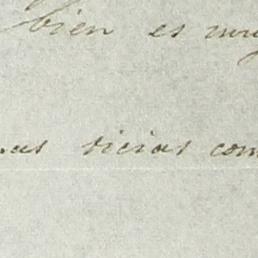 bien es muy
as vicias com